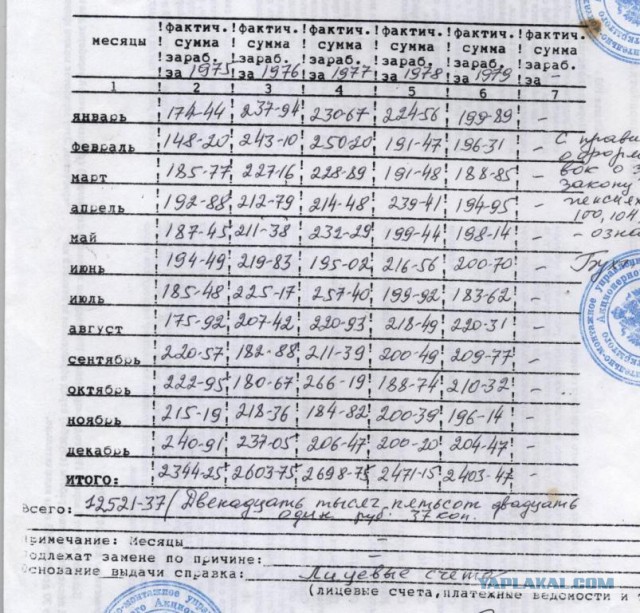 месяцы !фактич.!фактич.!фактич.!фактич.!фактич.!фактич.
! сумма ! сумма ! сумма ! сумма ! сумма ! сумма
!зараб. !зараб. !зараб. !зараб. !зараб. !зараб.
!за 1975 !за 1976 !за 1977 !за 1978 !за 1979 !за -
1 ! 2 ! 3 ! 4 ! 5 ! 6 ! 7
январь ! 174-44 ! 237-94 ! 230-67 ! 224-56 ! 199-89 ! -
февраль ! 148-20 ! 243-10 ! 250-20 ! 191-47 ! 196-31 ! -
март ! 185-77 ! 227-16 ! 228-89 ! 191-48 ! 188-85 ! -
апрель ! 192-88 ! 212-79 ! 214-48 ! 239-41 ! 194-95 ! -
май ! 187-45 ! 211-38 ! 232-29 ! 199-44 ! 198-14 ! -
июнь ! 194-49 ! 219-83 ! 195-02 ! 216-56 ! 200-70 ! -
июль ! 185-48 ! 225-17 ! 257-40 ! 199-92 ! 183-62 ! -
август ! 175-92 ! 207-42 ! 220-93 ! 218-49 ! 220-31 ! -
сентябрь ! 220-57 ! 182-88 ! 211-39 ! 200-49 ! 209-77 ! -
октябрь ! 222-95 ! 180-67 ! 266-19 ! 188-74 ! 210-32 ! -
ноябрь ! 215-19 ! 218-36 ! 184-82 ! 200-39 ! 196-14 ! -
декабрь ! 240-91 ! 237-05 ! 206-47 ! 200-20 ! 204-47 ! -
ИТОГО: ! 2344-25 ! 2603-75 ! 2698-75 ! 2471-15 ! 2403-47 ! -
Всего: 12521-37 / Двенадцать тысяч пятьсот двадцать
один руб. 37 коп.
Примечание: Месяцы -
Подлежат замене по причине: -
Основание выдачи справка: Лицевые счета
(лицевые счета,платежные ведомости и
С прави
оформ
вок о з
закону
пенсиях
100, 104
- озна
Бух
YAPLAKAL.COM